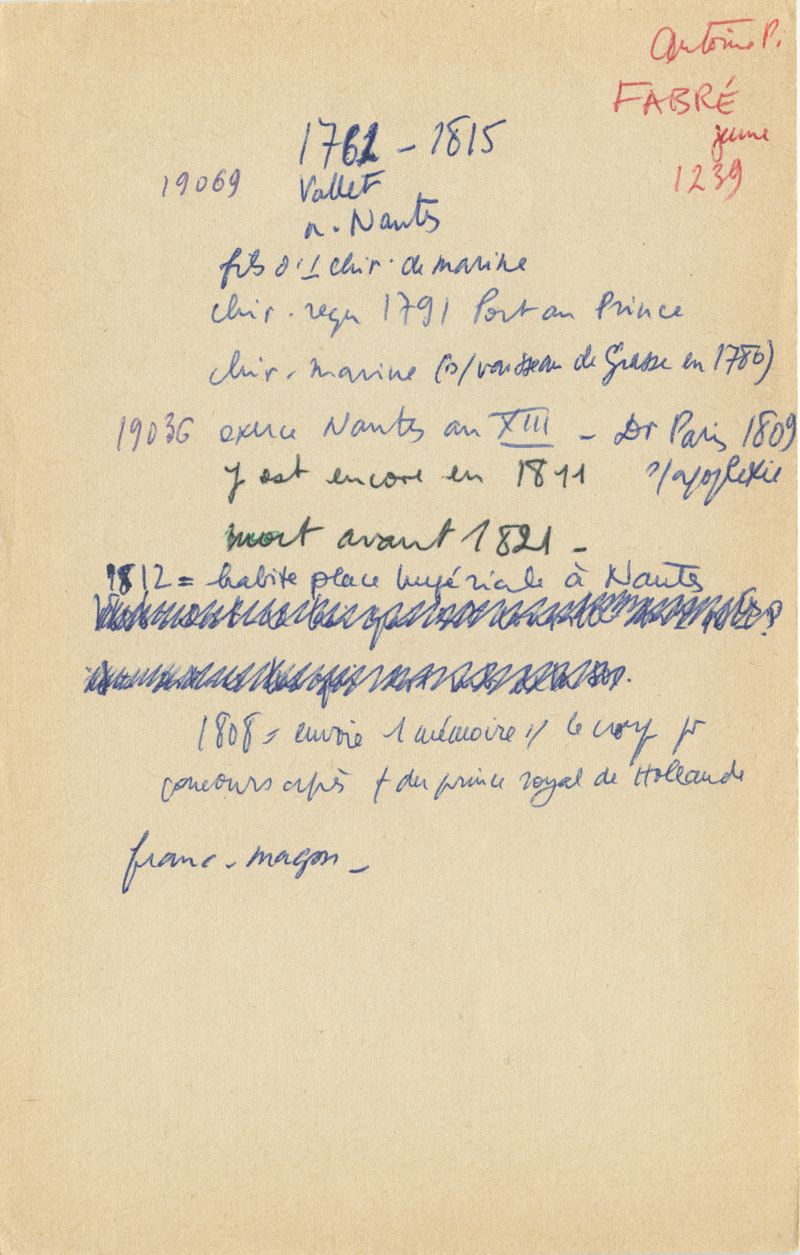 Antoine P.
FABRÉ
jeune
1239
1761 - 1815
19069 Vallet
n. Nantes
fils d'1 chir. de marine
chir. reçu 1791 Port au Prince
chir. marine (s/ vaisseau de Grasse en 1780)
19036 exerce Nantes an XIII - Dr Paris 1809
y est encore en 1811 s/ apoplexie
mort avant 1821 -
1812 = habite place Impériale à Nantes
1808 = envoie 1 mémoire s/ le croup pr
concours après † du prince royal de Hollande
franc-maçon -